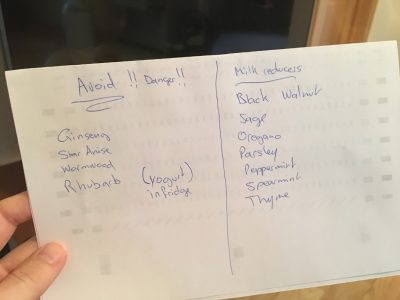 Avoid !! Danger!!
Ginseng
Star Anise
Wormwood
Rhubarb (yogurt)
in fridge
Milk reducers
Black Walnut
Sage
Oregano
Parsley
Peppermint
Spearmint
Thyme